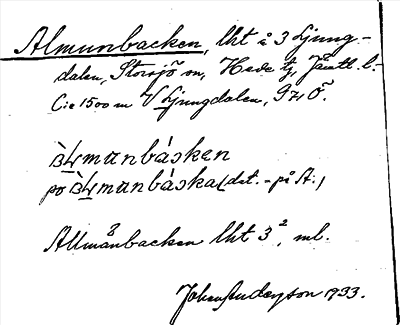 Almunbacken, lht å 3 Ljung-
dalen, Storsjö sn, Hede tg, Jämtl. l.
C:a 1500 m V Ljungdalen, 971 Ö.
manbásken
på manbáska (dat. - på A:)
Allmånbacken lht 3², ml.
Johan Anderson 1933.